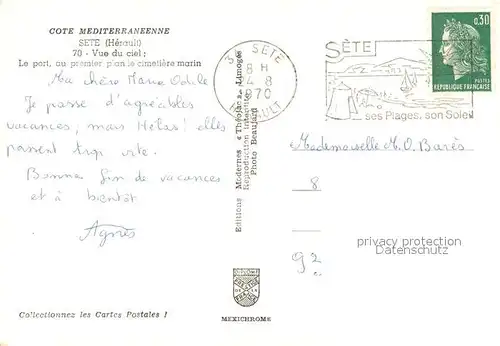 COTE MEDITERRANEENNE
SETE (Hérault)
70 - Vue du ciel :
Le port, au premier plan le cimetière marin
Ma chère Marie Odile
Je passe d'agréables
vacances, mais Hélas! elles
passent trop vite.
Bonne fin de vacances
et à bientôt
Agnès
Collectionnez les Cartes Postales !
Editions Modernes « Théojac » Limoges
Reproduction Interdite
Photo Beaujard
MEXICHROME
34 SETE
8 H
4-8
1970
HERAULT
SÈTE
ses Plages, son Soleil
0,30
POSTES
REPUBLIQUE FRANÇAISE
Mademoiselle M.O. Barès
8
92
privacy protection
Datenschutz